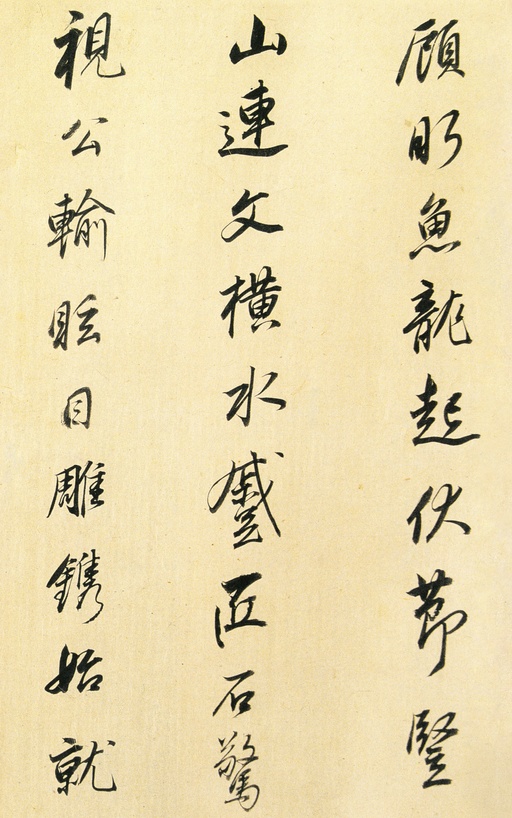 顧盼魚龍起伏節竪
山連文橫水蹙匠石驚
視公輸眩目雕鐫始就